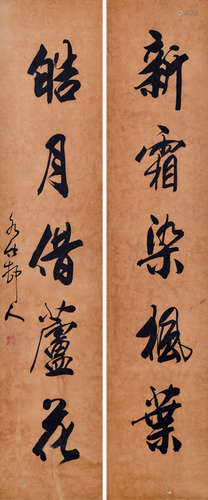 新霜染楓葉
皓月借蘆花